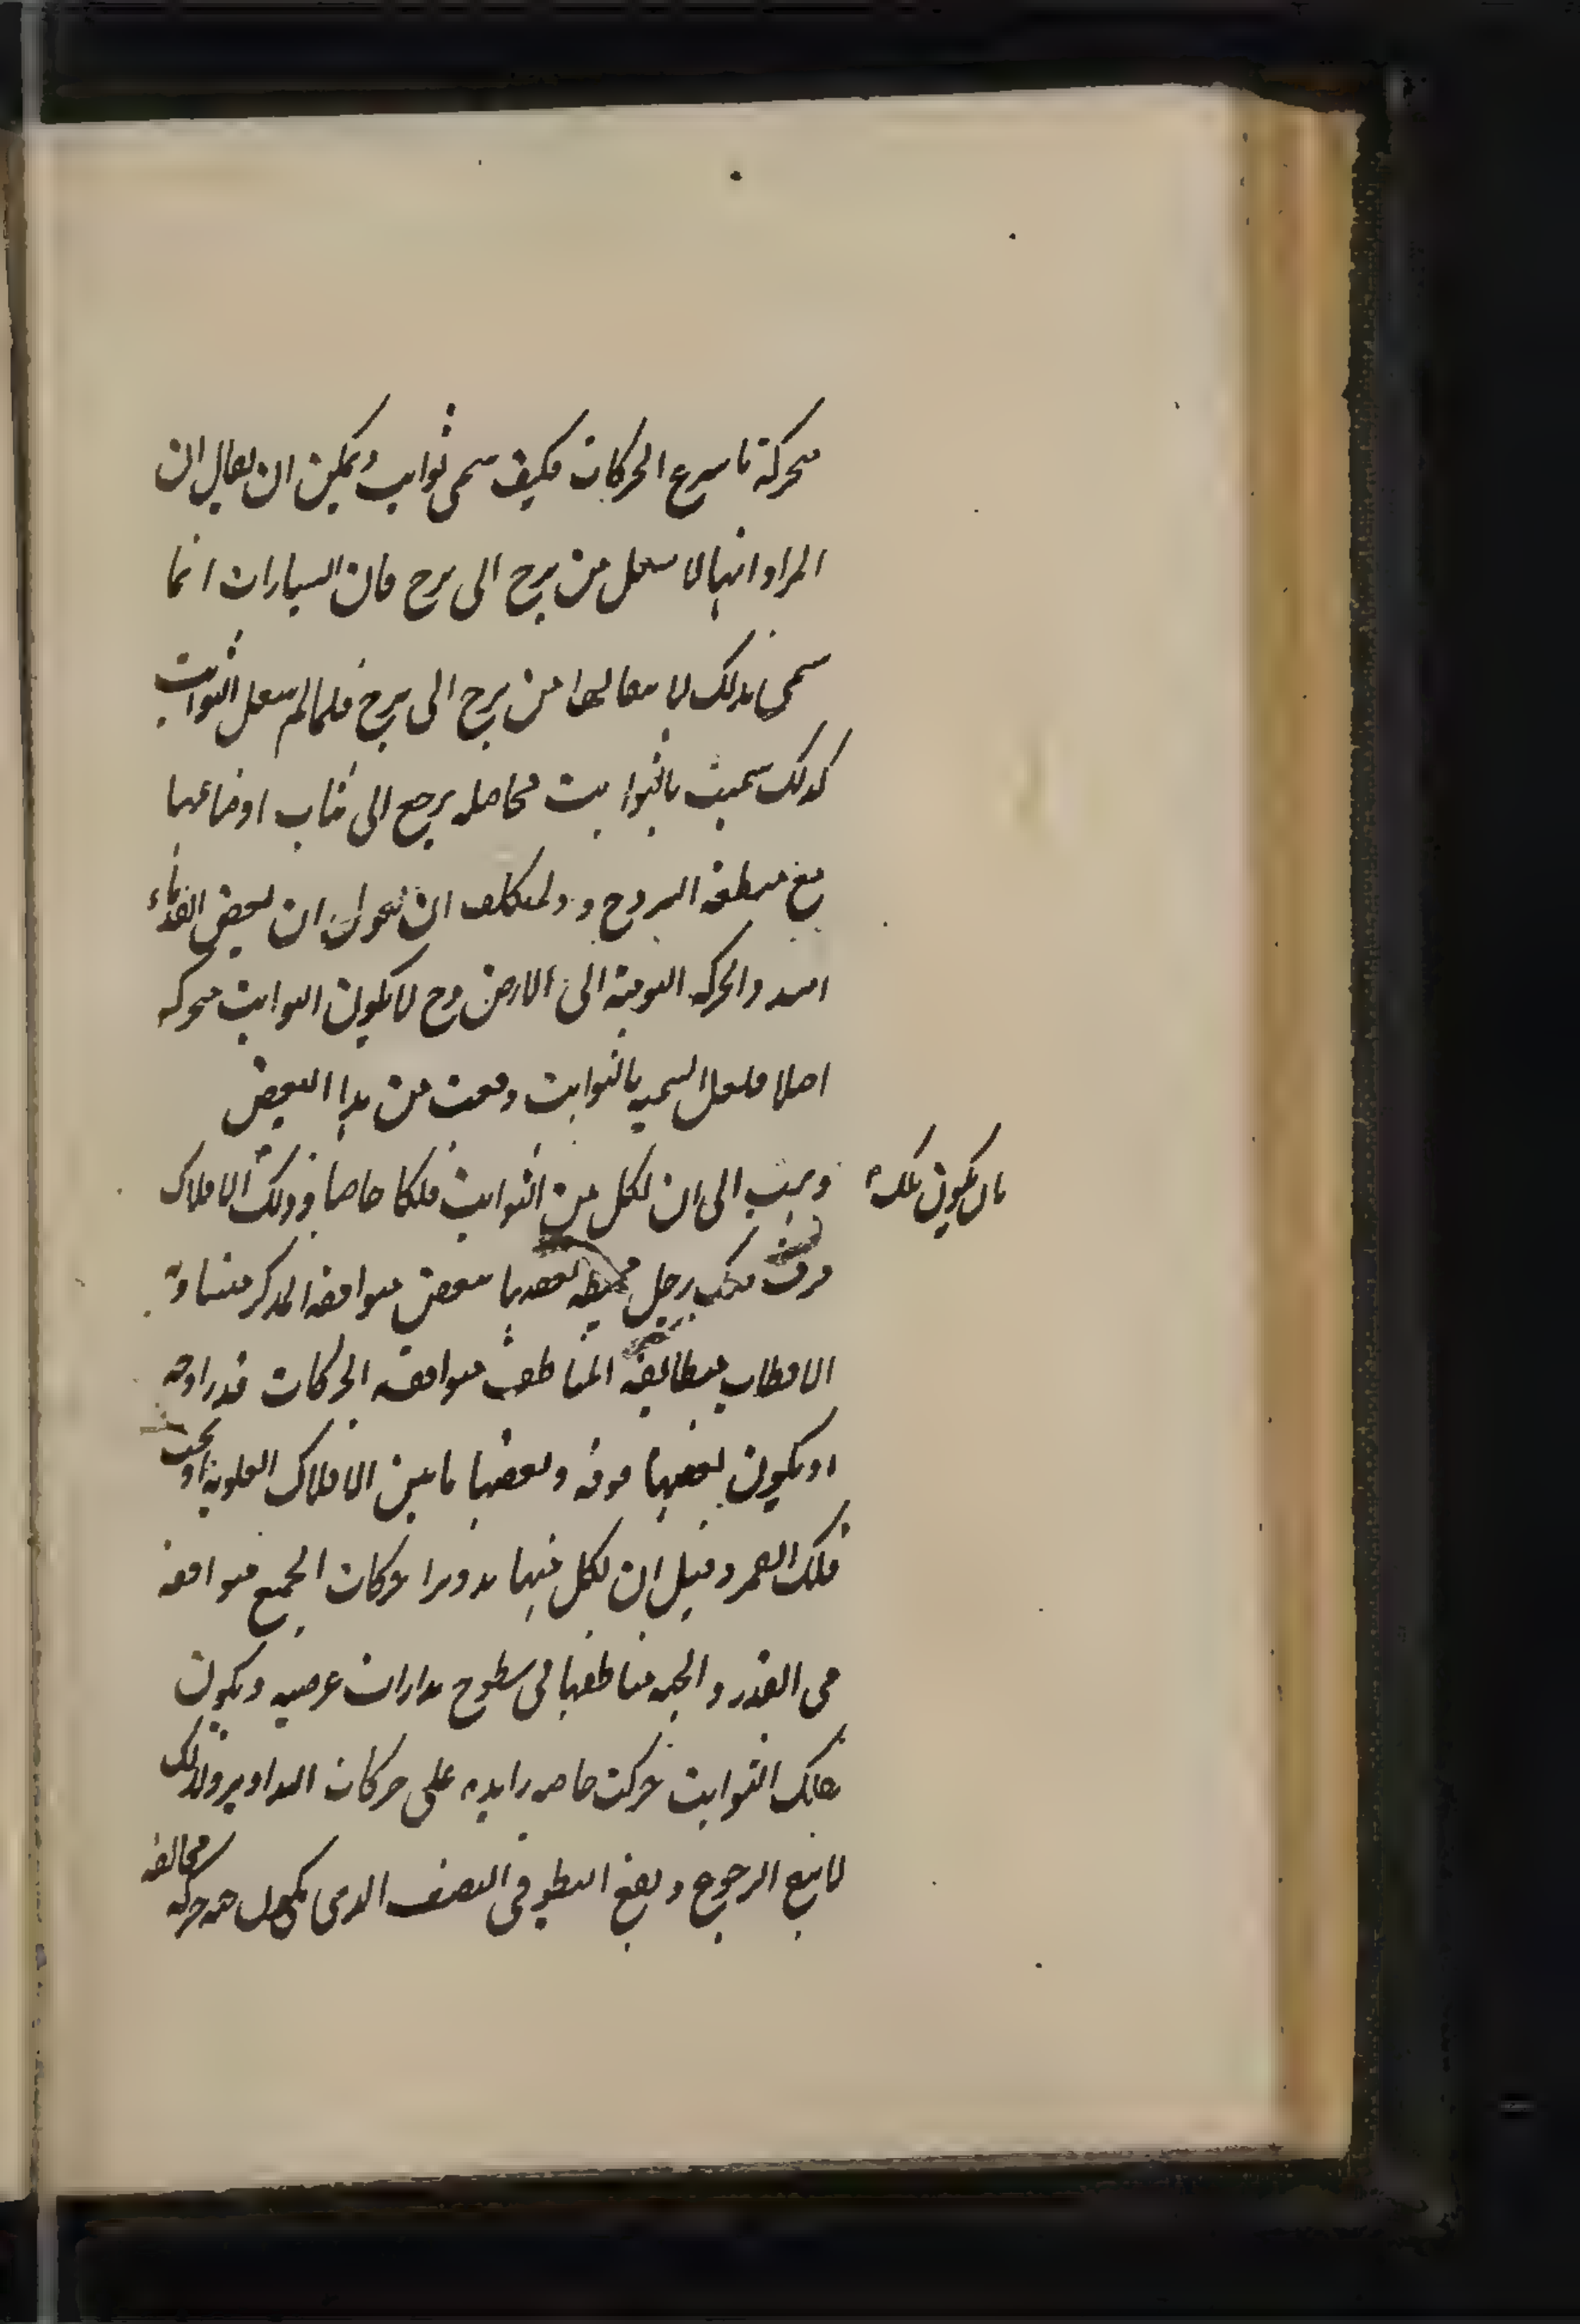 متحركة باسرع الحركات فكيف تسمى ثوابت ويمكن ان يقال ان
المراد انها لا تنتقل من برج الى برج فان السيارات انما
سمى بذلك لانتقالها من برج الى برج فلما لم تنتقل الثوابت
كذلك سميت بالثوابت فحاصله يرجع الى ثبات اوضاعها
مع منطقة البروج وللمتكلف ان يقول ان بعض القدماء
اسندوا الحركة اليومية الى الارض وح لا يكون الثوابت متحركة
اصلا فلعل التسمية بالثوابت وقعت من هذا البعض
وذهب الى ان لكل من الثوابت فلكا خاصا وذلك الافلاك
بان يكون تلك
فوق فلك زحل محيطة بعضها ببعض متوافقة المركز متسامتة
الاقطاب متطابقة المناطق متوافقة الحركات قدرا وجهة
او يكون بعضها فوقه وبعضها ما بين الافلاك العلوية او تحت
فلك القمر وقيل ان لكل منها تدويرا حركات الجميع متوافقة
في القدر والجهة مناطقها في سطوح مدارات عرضية ويكون
لتلك الثوابت حركت خاصة زايدة على حركات التداوير ولذلك
لا يقع الرجوع ويقع البطو في النصف الذي يكون حركة
مخالفة